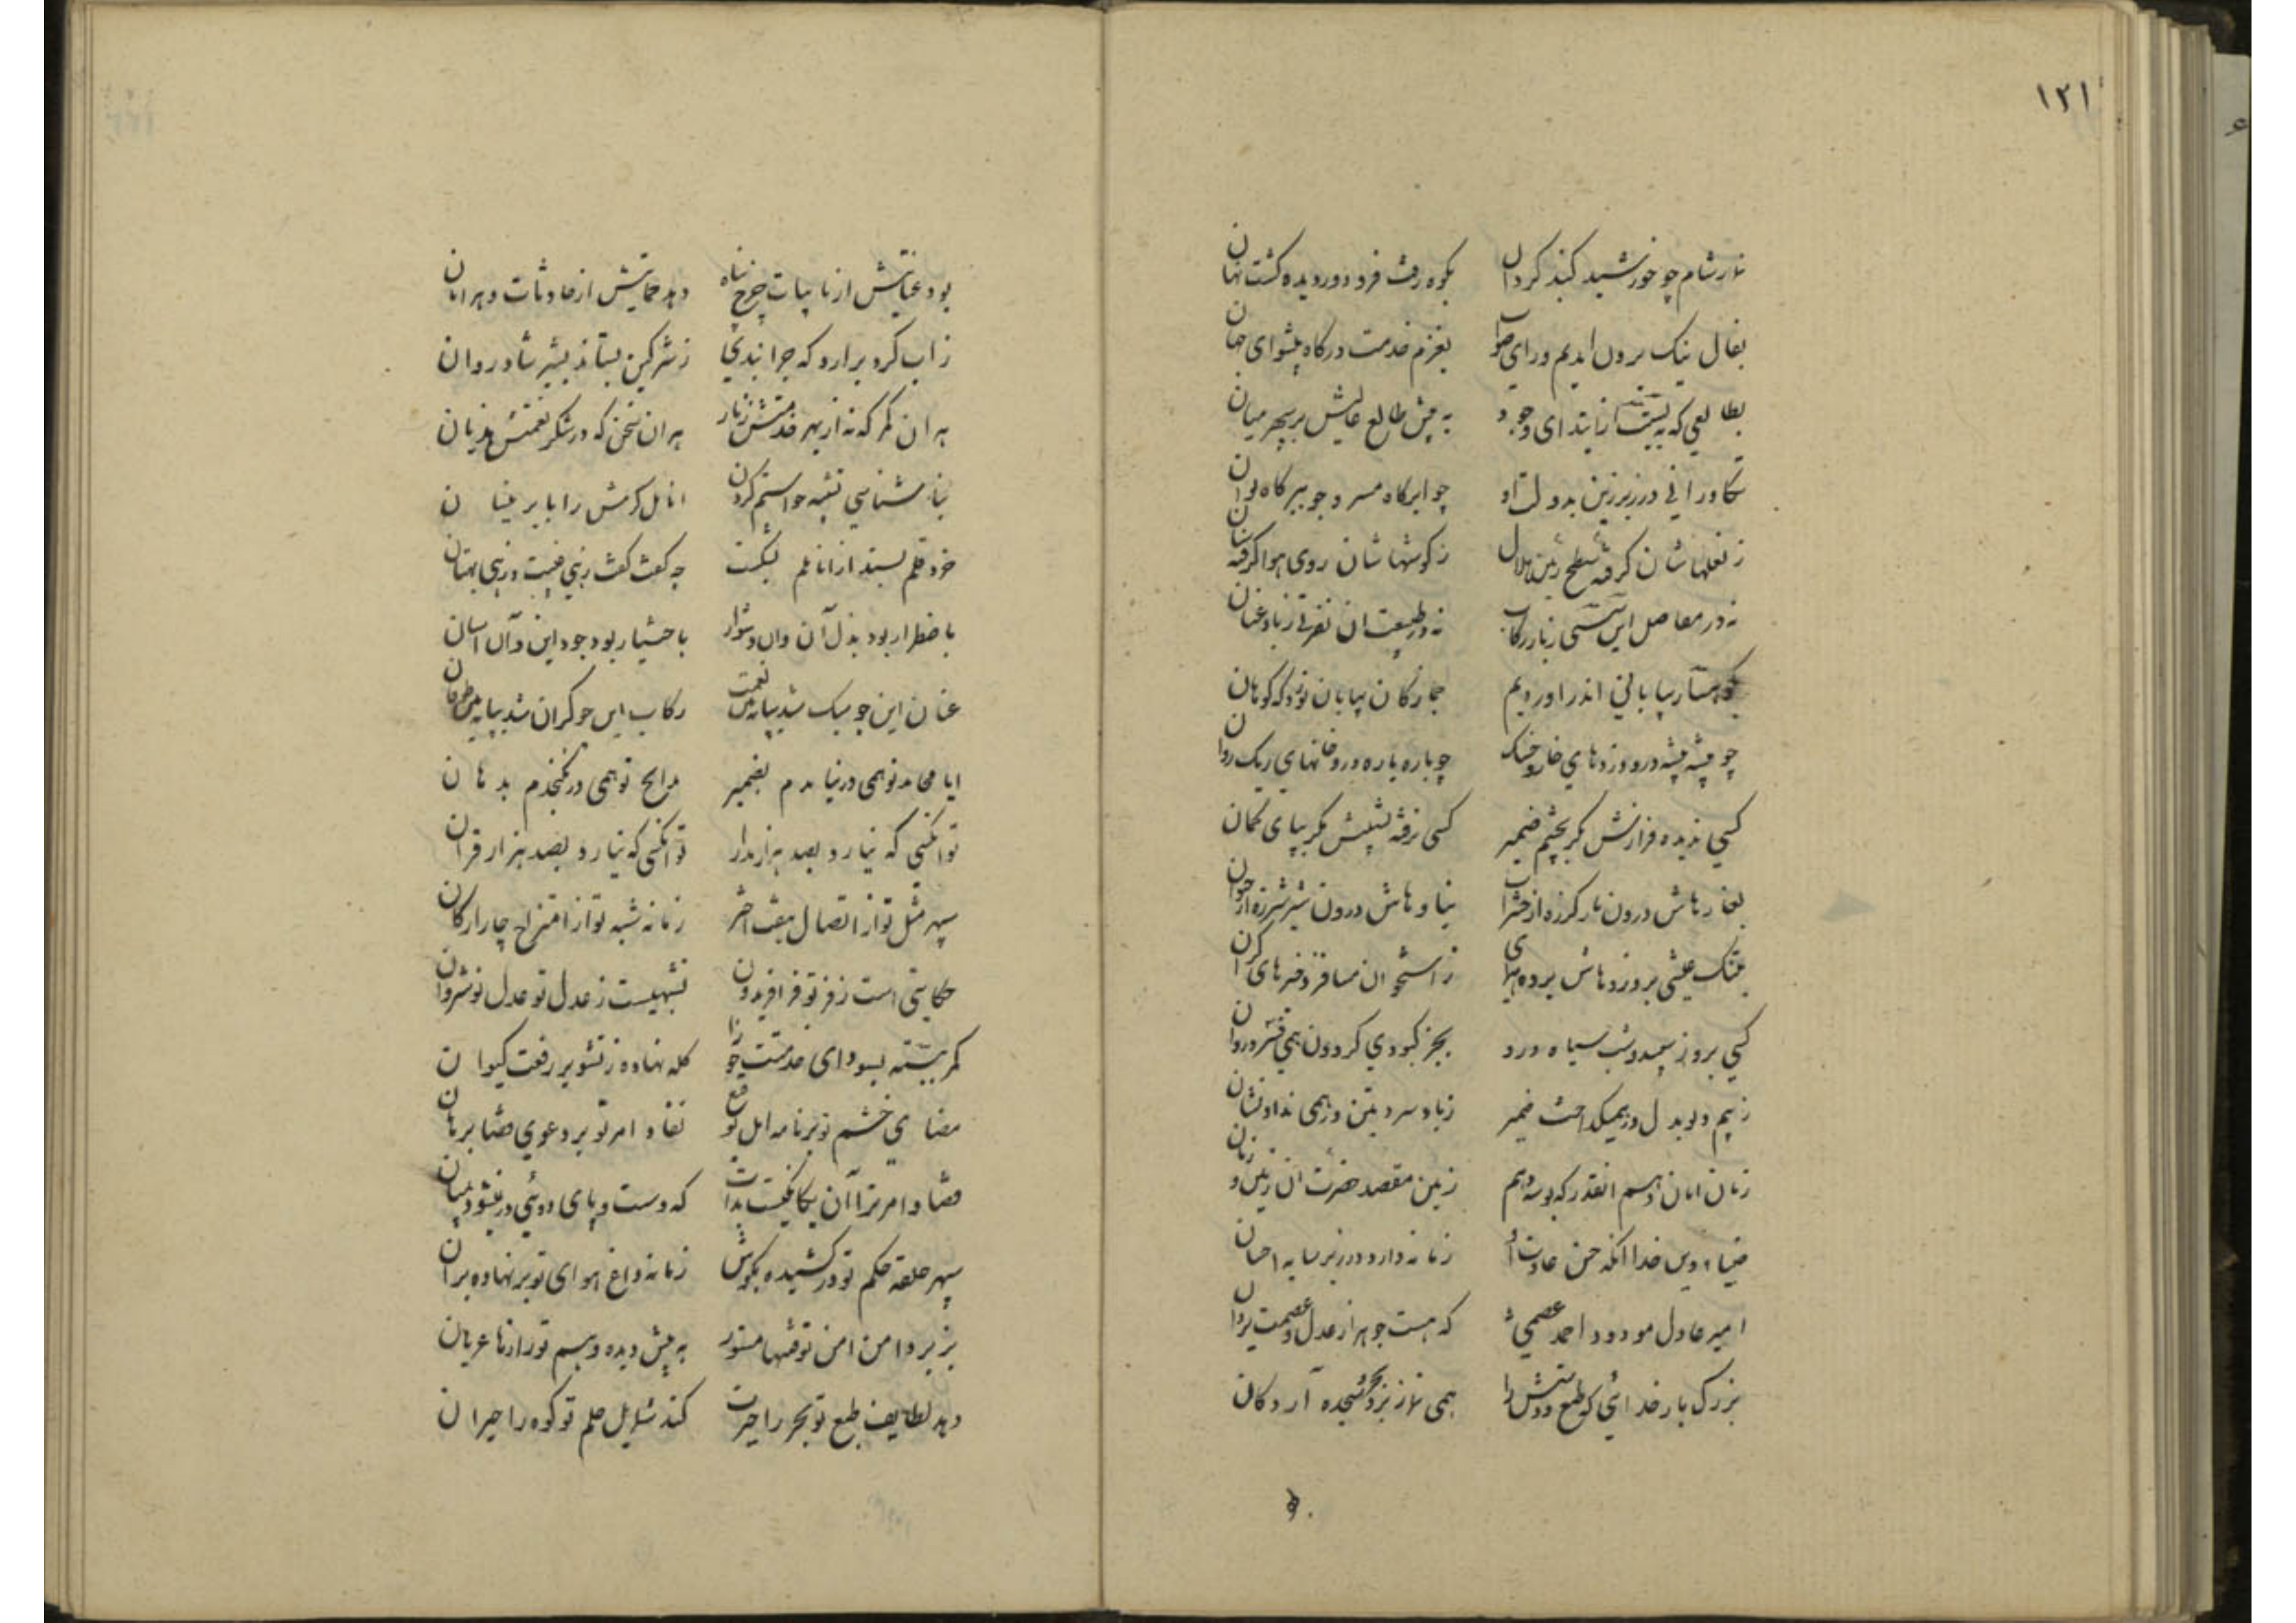 ۱۲۱
نماز شام چو خورشید کنبد کردان بکوه رفت فرو دور دیده کشت نهان
بفال نیک برون امدیم و رای صواب بعزم خدمت درکاه پیشوای جهان
بطالعی که ببیت از ابتدای وجود به پیش طالع عالیش بر میان
تکاورانی در زیر زین بدولت او چو ابر کاه مسیر و چو ببر کاه توان
ز نعلهاشان کرفته سطح زمین هلال ز کوشهاشان روی هوا کرفته سنان
نه در مفاصل این سستی ز بار رکاب نه در طبیعت ان نفرتی ز باد عنان
بکوهسار بیابانی اندر اوردیم جمازکان بیابان نورد که کوهان
چو پشه پشه درو وزدهای خار و خسک چو باره باره درو خانهای ریک روان
کسی ندیده فرازش مکر بچشم ضمیر کسی نرفته نشیبش مکر بپای کمان
بغارهاش درون مار کرزه از حشرات بیاوهاش درون شیر شرزه از حیوان
پلنک عیشی بروزدهاش برده هرای ز استخوان مسافر ذخیرهای کران
کسی بروز سپید و شب سیاه درو بجز کبودی کردون همی نشد روان
ز بیم دیو بدل در همیکداخت ضمیر ز باد سرد بتن در همی نداد نشان
زمان امان دهم انقدر که بوسه دهم زمین مقصد حضرت ان زمین و زمان
ضیاء دین خدا انکه حسن عادت او زمانه دارد در زیر سایه احسان
امیر عادل مودود احمد عصمی که هست جوهر از عدل و عصمت یزدان
بزرک بار خدائی که طبع و دستش را همی نماز برد بحر و سجده آرد کان
بود عنایتش از نایبات چرخ پناه دهد حمایتش از حادثات دهر امان
ز اب کرد برارد که جرا بندی ز شر کین بستاند بشیر شادروان
هر ان کمر که نه از بهر خدمتش زنار هر ان سخن که نه در شکر نعمتش هذیان
بناز مشناسی تشبه خواستم کردن انامل کرمش را بابر نیسان
خرد قلم بستد از اناملم بکشت چه کفت کفت زهی غیبت و زهی بهتان
باضطرار بود بذل آن وان دشوار باختیار بود جود این وآن اسان
عنان این چو سبک شد ببارد نعمت رکاب این چو کران شد ببارد طوفان
ایا محامد تو همی در نیامدم بضمیر مدایح تو همی در نکنجدم بدهان
تو انکسی که نیارد بصد هزار مدار تو انکسی که نیارد بصد هزار قران
سپهر مثل تو از اتصال هفت اختر زمانه شبه تو از امتزاج چار ارکان
حکایتی است ز فر تو فر افریدون نشانیست ز عدل تو عدل نوشروان
کمر ببسته بسودای خدمتت جوزا کله نهاده ز تشویر رفعت کیوان
مضای خشم تو برنامه اجل توقیع نفاد امر تو بر دعوی قضا برهان
قضا و امر ترا آن یکانکیست بذات که دست و پای دوئی در نیشود بمیان
سپهر حلقه حکم تو در کشیده بکوش زمانه داغ هوای تو بر نهاده بران
بزیر دامن امن تو فتنها مستور به پیش دیده وهم تو رازها عریان
دهد لطایف طبع تو بحر را حیرت کند شمایل حلم تو کوه را حیران